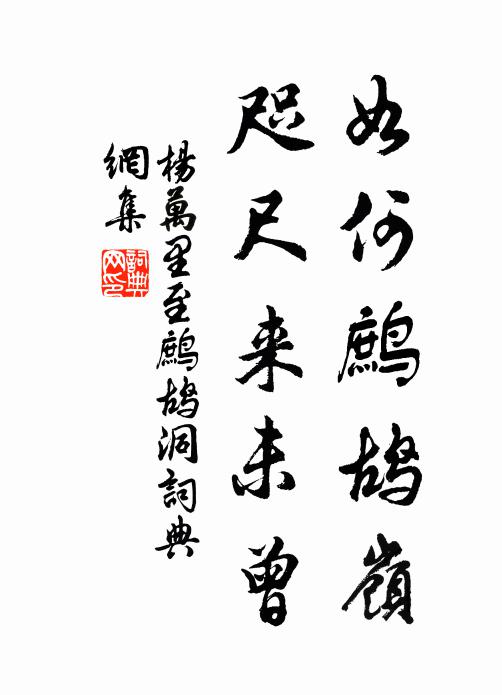 如何鷓鴣嶺
咫尺来未曾
楊萬里至鷓鴣洞詞典
網集
詞典
网印